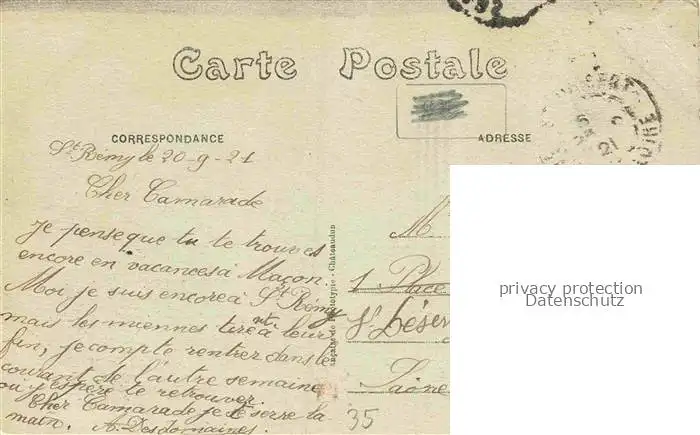 Carte Postale
CORRESPONDANCE
ADRESSE
St Rémy le 20-9-21
Cher Camarade
Je pense que tu te trouves
encore en vacances à Macon.
Moi, je suis encore à St Rémy
mais les miennes tirent à leur
fin, je compte rentrer dans le
courant de l'autre semaine
ou j'espère te retrouver.
Cher Camarade je te serre la
main. A. Desdomaines.
Phototypie - Châteaudun
M
1 Place
St Léser
Saône
35
privacy protection
Datenschutz